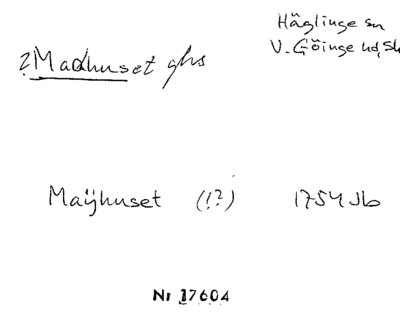 Häglinge sn
V. Göinge hd, Sk
?Madhuset ghs
Maÿhuset (!?) 1754 Jb
Nr 17604